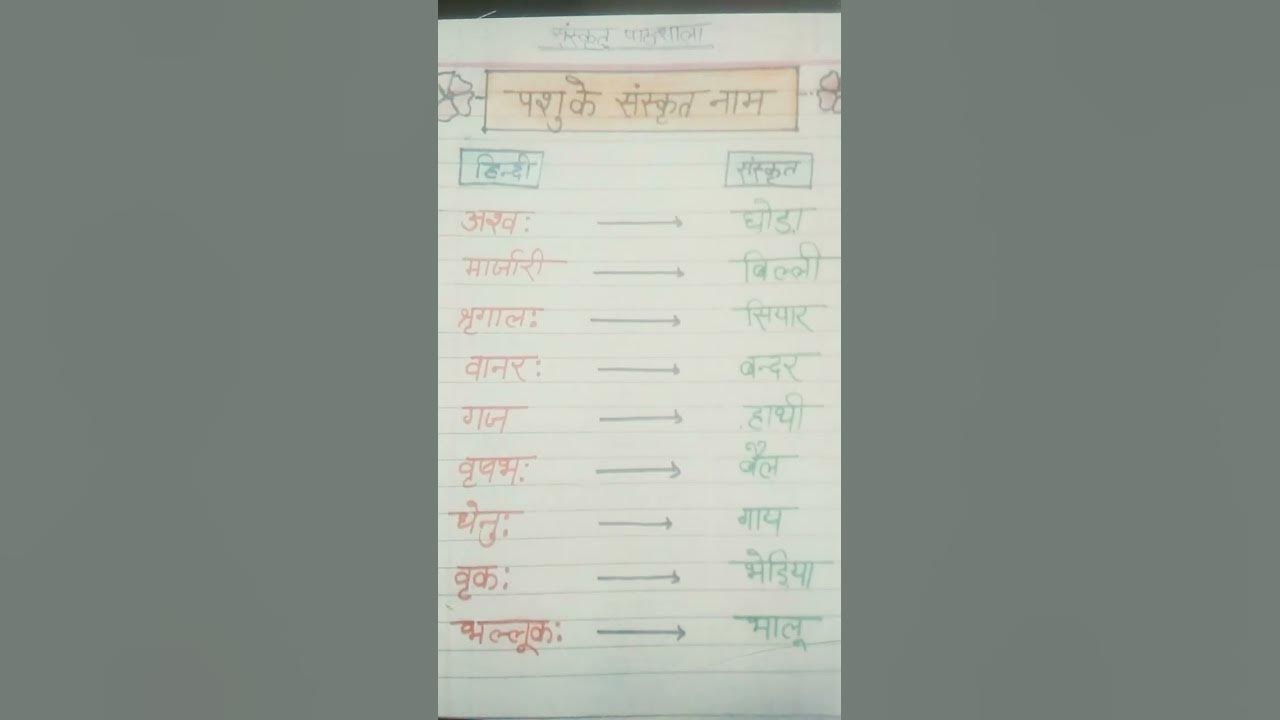 संस्कृत पाठशाला
पशु के संस्कृत नाम
हिन्दी संस्कृत
अश्वः → घोड़ा
मार्जारी → बिल्ली
श्रृगालः → सियार
वानरः → बन्दर
गज → हाथी
वृषभः → बैल
धेनुः → गाय
वृकः → भेड़िया
भल्लूकः → भालू